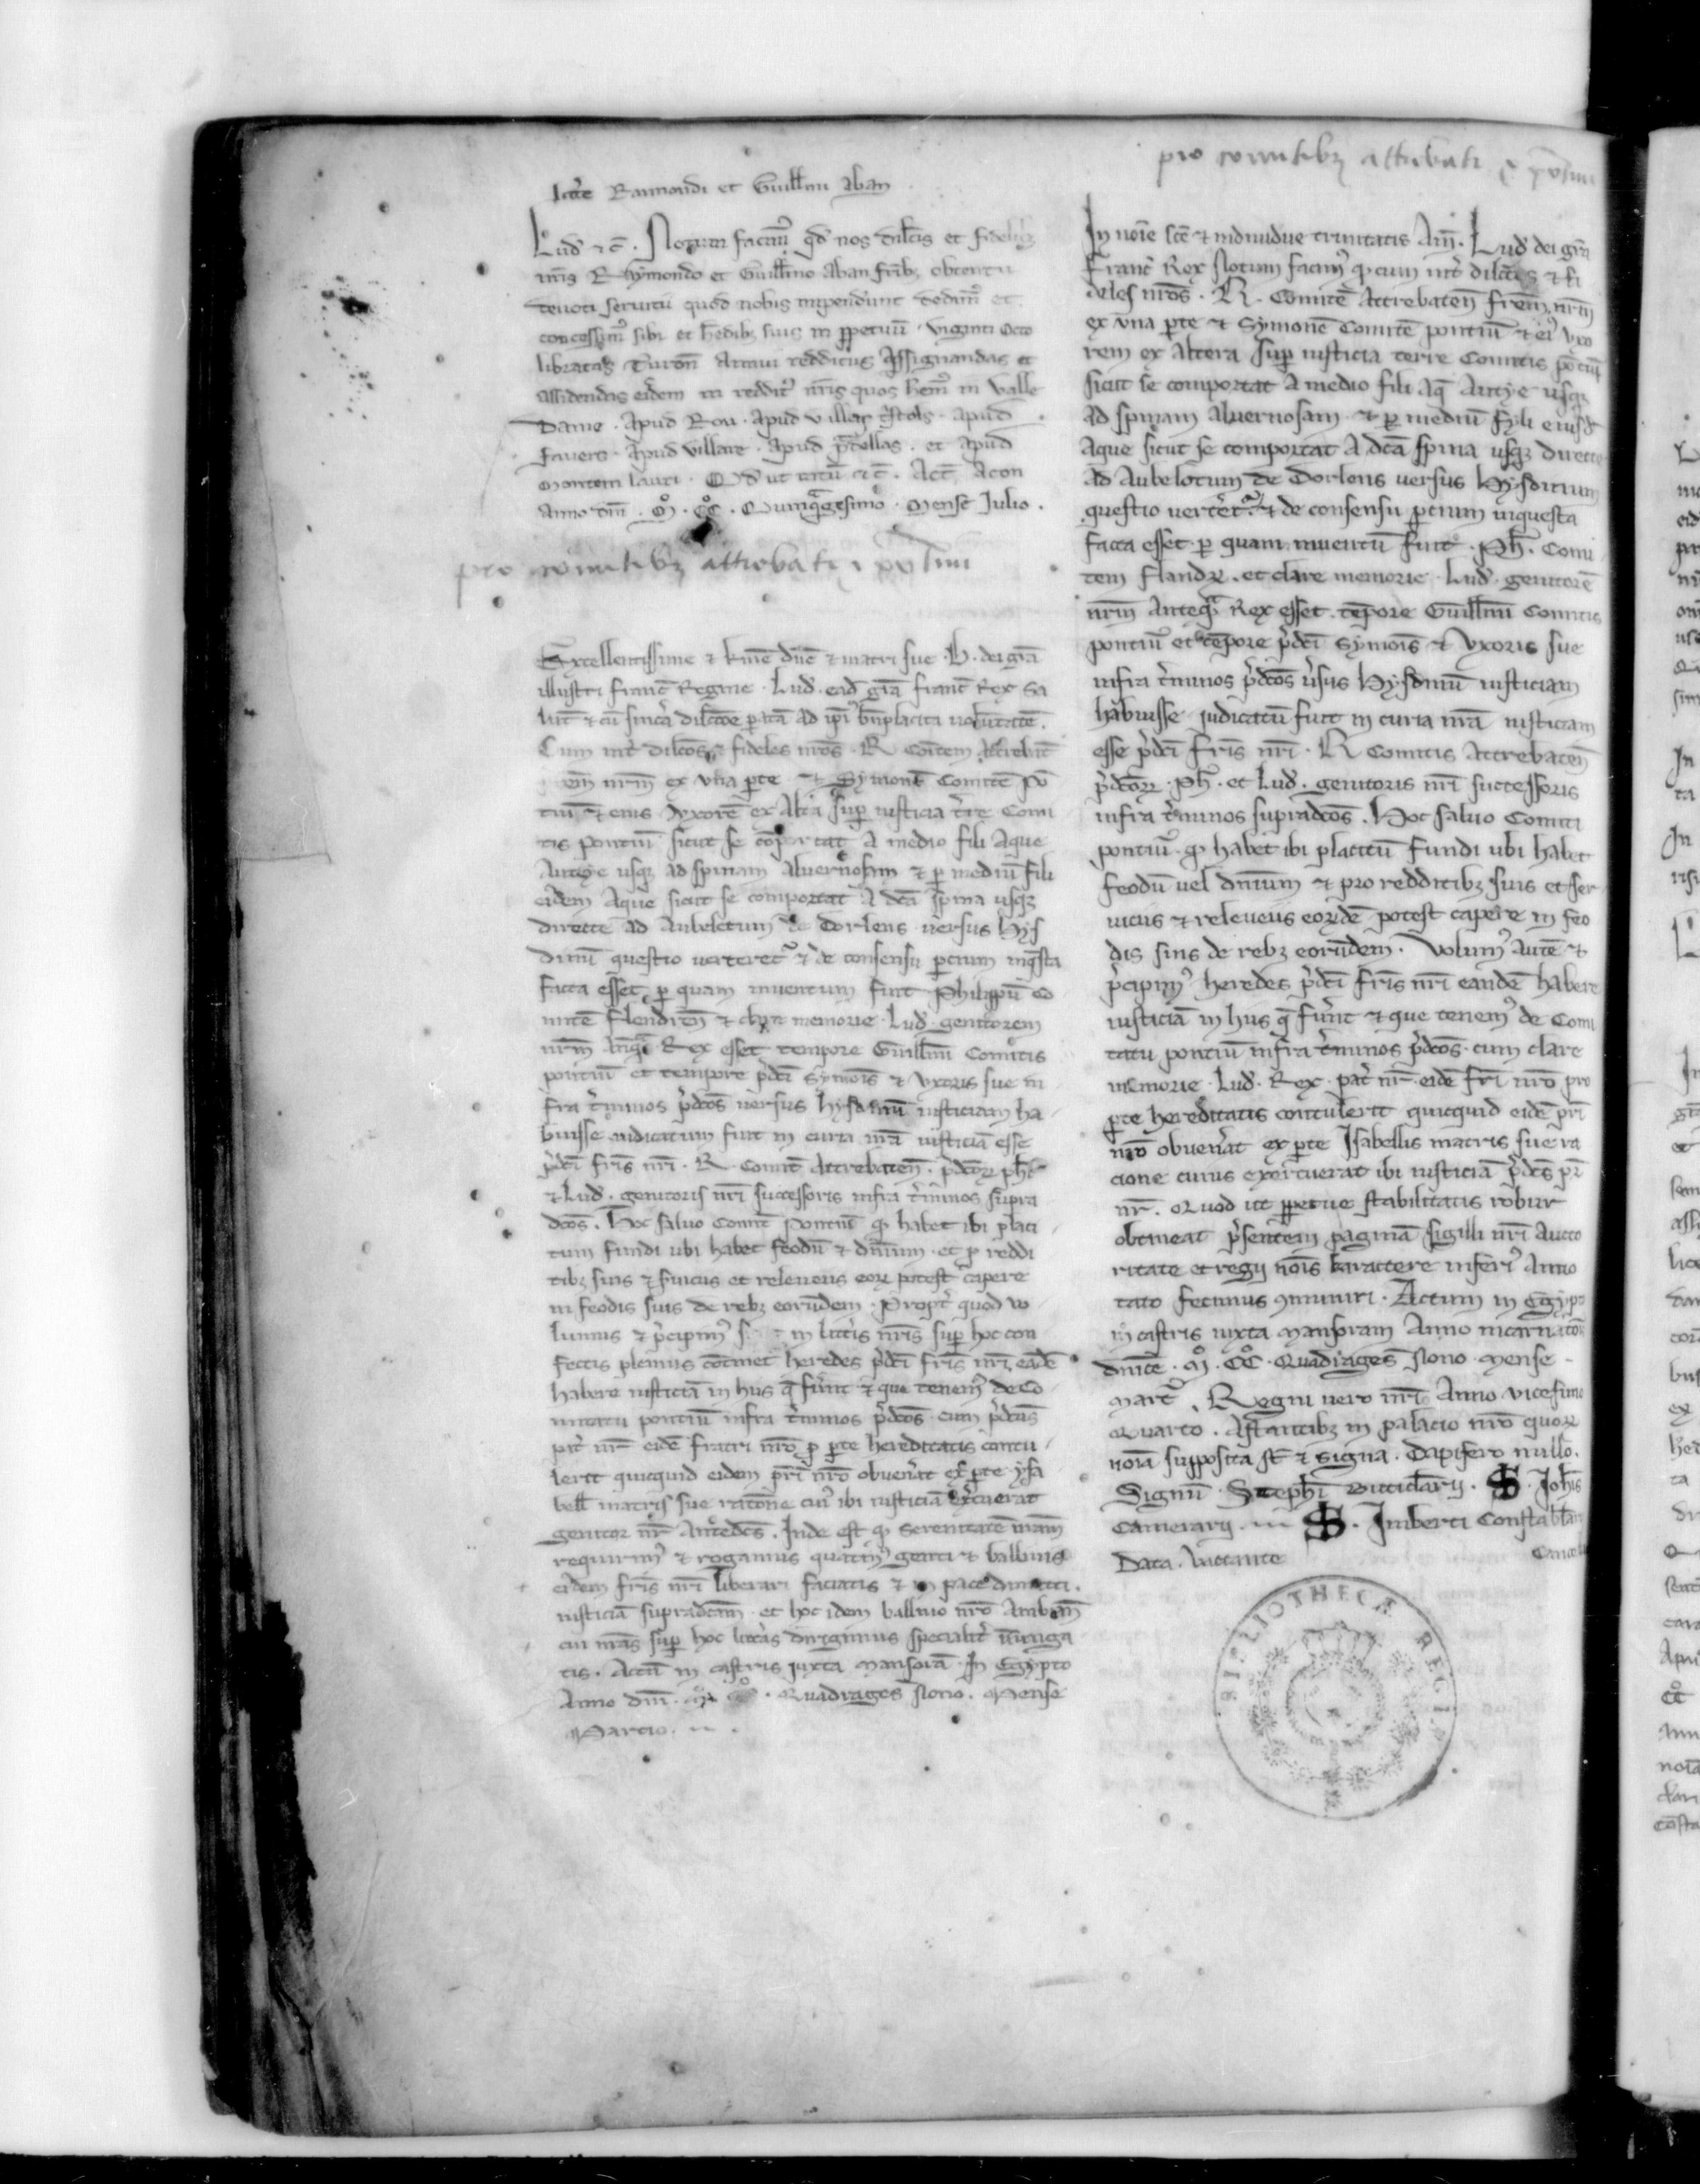 Lit̄te Raimondi et Guill̄mi aban
Lud᷒ ⁊ c̄. Notum facim᷒ qd̄ nos dil̄cis et fidelibꝫ
nr̄is Raymondo et Guill̄mo aban fr̄ibꝫ obtentu
devoti servitii quod nobis impendunt dedim᷒ et
concessim᷒ sibi et h̄edibꝫ suis in ꝑpetuū. viginti octo
libratas Turoñ annui redditus assignandas et
assidendas eisdem in reddit᷒ nr̄is quos hem᷒ in valle
Danie. apud Rou. apud villas apud
favers. apud villare. apud p̄tellas. et apud
montem lauri. Qd̄ ut ratū ⁊ c̄. Act̄ Acon
anno dn̄i. M̊. CC̊. Quinq̄gesimo. Mense Julio.
pro comitibꝫ attrebati ⁊ pōtivi
Excellentissime ⁊ kr̄me dn̄e ⁊ matri sue. B. dei gr̄a
illustri franc̄ Regine. Lud᷒. ead̄ gr̄a franc̄ Rex Sa
lut̄ ⁊ cū sinc̄a dilc̄ōe parata ad ip̄i᷒ bn̄placita volūtatē.
Cum int̄ dilc̄os ⁊ fideles nr̄os. R. Comitem Attrebat̄
nr̄m ex una ꝑte ⁊ Symonē Comitē Pō
tiuī ⁊ eius Vxorē ex alt̄a sup̄ iusticia t̄re Comi
tis Pontiuī sicut se cōportat a medio fili aque
Autye usqꝫ ad spinam aluernosam ⁊ ꝑ mediū fili
eiꝰdem aque sicut se comportat a dc̄a spina usqꝫ
directe ad aubeletum de Dorlens versus Hys
dinū questio verteret᷒ ⁊ de consensu ꝑcium inq̄sta
facta esset. ꝑ quam inventum fuit Philippū Co
mitē flandreñ ⁊ clare memorie. Lud᷒. genitorem
nr̄m anq̄ Rex esset tempore Guill̄mi Comitis
pontiuī et tempore p̄dc̄i Symōis ⁊ Vxoris sue in
fra t̄minos p̄dc̄os versus hysdinū iusticiam ha
buisse iudicatum fuit in curia nr̄a iusticiā esse
p̄dc̄i fr̄is nr̄i. R. Comit̄ Attrebateñ. p̄dc̄oꝝ ph̄
⁊ Lud᷒. genitoris nr̄i successoris infra t̄minos supra
dc̄os. Hoc salvo Comit̄ Pontiuī qꝫ habet ibi placi
tum fundi ubi habet feodū ⁊ dn̄ium. et ꝓ reddi
tibꝫ suis ⁊ s̄uiciis et releveiis eoꝝ potest capere
in feodis suis de rebꝫ eorundem. Propt̄ quod vo
lumus ⁊ p̄cipim᷒ in litt̄is nr̄is sup̄ hoc con
fectis plenius cōtinet᷒ heredes p̄dc̄i fr̄is nr̄i eādē
habere iusticiā in hiis q̄ fūint ⁊ que tenem᷒ de Co
mitatu pontiuī infra t̄minos p̄dc̄os. cum p̄dc̄us
pat̄ nr̄ eidē fratri nr̄o ꝓ ꝑte hereditatis contu
lerit quicquid eidem pr̄i nr̄o obuen̄at ex ꝑte ysa
bell̄ matris sue ratōne cui᷒ ibi iusticiā ex̄cuerat
genitor nr̄ Antedc̄s. Inde est qꝫ Serenitatē vr̄am
requirim᷒ ⁊ rogamus quatin᷒ genti ⁊ ballivis
eiꝰdem fr̄is nr̄i liberari faciatis ⁊ in pace dimitti.
iusticiā supradc̄am. et hoc idem ballivo nr̄o Ambiañ
cui nr̄as sup̄ hoc litt̄as dirigimus specialit̄ iniunga
tis. Actū in castris iuxta Mansorā In Egypto
Anno dn̄i. M̊. CC̊. Quadrages̄ Nono. Mense
Marcio.
pro comitibꝫ attrebati ⁊ pōtivi
In noīe sc̄e ⁊ individue trinitatis Am̄. Lud᷒ dei gr̄a
Franc̄ Rex Notum facim᷒ qꝫ cum int̄ dilc̄os ⁊ fi
deles nr̄os. R. Comitē Attrebateñ frēm nr̄m
ex una ꝑte ⁊ Symonē Comitē pontiuī ⁊ ei᷒ uxo
rem ex altera sup̄ iusticia terre Comitis pōtiuī
sicut se comportat a medio fili aq̄ Autye usqꝫ
ad spinam aluernosam ⁊ ꝑ mediū fyli eiusd̄
aque sicut se comportat a dc̄a spina usqꝫ directe
ad Aubelotum de Dorlens versus Hysdinium
questio vertēt᷒. ⁊ de consensu ꝑcium inquesta
facta esset. ꝑ quam inventū fuit. Ph̄. Comi
tem flandꝝ. et clare memorie. Lud᷒. genitorē
nr̄m Anteq̄ Rex esset. tēpore Guill̄mi Comitis
pontiuī et tēpore p̄dc̄i Symōis ⁊ Vxoris sue
infra t̄minos p̄dc̄os ūsus Hysdinū iusticiam
habuisse. iudicatū fuit in curia nr̄a iusticiam
esse p̄dc̄i fr̄is nr̄i. R Comitis Attrebateñ
p̄dc̄oꝝ. Ph̄. et Lud᷒. genitoris nr̄i successoris
infra t̄minos supradc̄os. Hoc salvo Comiti
pontiuī. qꝫ habet ibi placitū fundi ubi habet
feodū vel dn̄ium ⁊ pro redditibꝫ suis et ser
viciis ⁊ releveiis eorūdē potest capere in feo
dis suis de rebꝫ eorūdem. Volum᷒ autē ⁊
p̄cipim᷒ heredes p̄dc̄i fr̄is nr̄i eandē habere
iusticiā in hiis q̄ fūint ⁊ que tenem᷒ de Comi
tatu pontiuī infra t̄minos p̄dc̄os. cum clare
memorie. Lud᷒. Rex. pat̄ nr̄. eidē fr̄i nr̄o pro
ꝑte hereditatis contulerit quicquid eidē pr̄i
nr̄o obuen̄at ex ꝑte Isabellis matris sue ra
cione cuius exercuerat ibi iusticiā p̄dc̄s pr̄
nr̄. Quod ut ꝑpetue stabilitatis robur
obtineat p̄sentem paginā sigilli nr̄i Aucto
ritate et regii nōis karactere inferi᷒ Anno
tato fecimus ꝯmuniri. Actum in Egypto
in castris iuxta Mansoram Anno incarnatōis
dn̄ice. M̊. CC̊. Quadrages̄ Nono. Mense
Marc̄. Regni vero nr̄i Anno vicesimo
Quarto. Astantibꝫ in palacio nr̄o quoꝝ
noīa supposita st̄ ⁊ signa. Dapifero nullo.
Signū. Steph̄i buticularii. S. Joh̄is
Camerarii. S. Imberti Constabl̄arii
Data. Vacante Cancell
BIBLIOTHECAE REGIAE